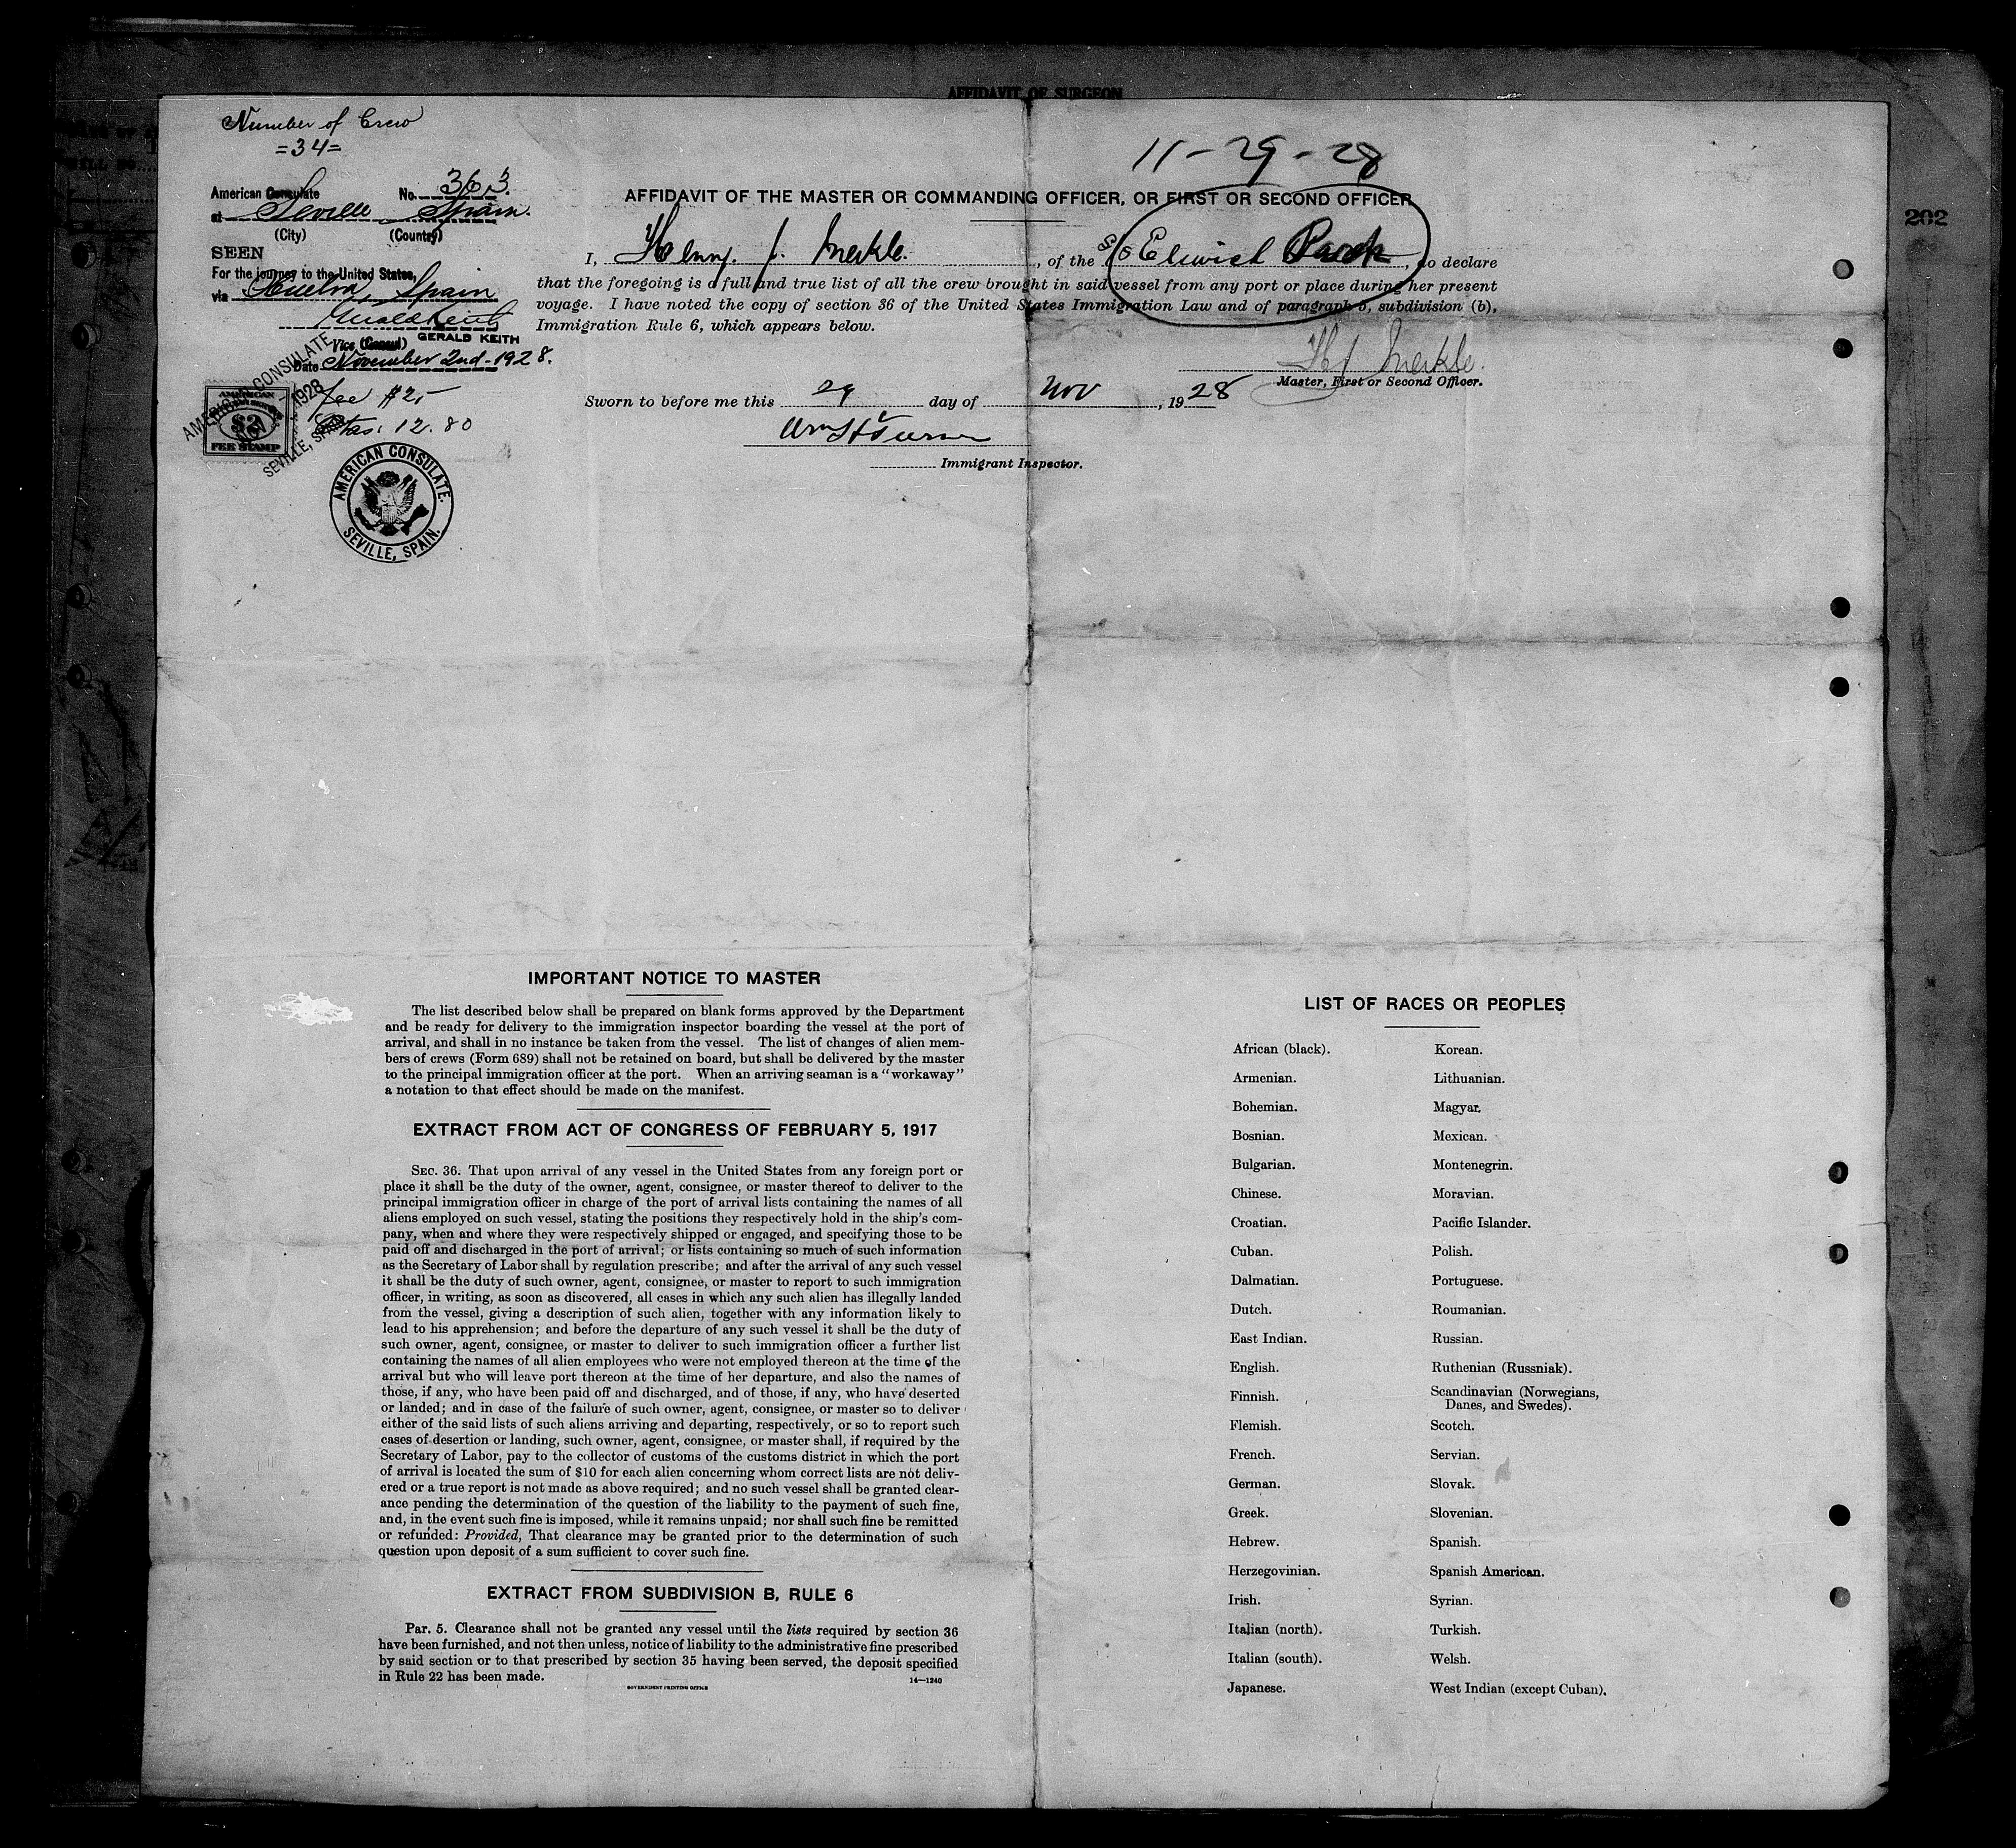 AFFIDAVIT OF SURGEON
Number of Crew
=34=
11-29-28
American Consulate No. 363.
at Seville Spain.
(City) (Country)
SEEN
For the journey to the United States,
via Huelva, Spain
Gerald Keith
Vice (Consul) GERALD KEITH
Date November 2nd-1928.
Fee $2,-
Ptas: 12.80
AMERICAN CONSULATE
1928
SEVILLE, SPAIN
AMERICAN
$2
FEE STAMP
AMERICAN CONSULATE.
SEVILLE, SPAIN.
202
AFFIDAVIT OF THE MASTER OR COMMANDING OFFICER, OR FIRST OR SECOND OFFICER
I, Henry. J. Merkle., of the S/S Park, do declare
that the foregoing is a full and true list of all the crew brought in said vessel from any port or place during her present
voyage. I have noted the copy of section 36 of the United States Immigration Law and of paragraph 5, subdivision (b),
Immigration Rule 6, which appears below.
H J Merkle.
Master, First or Second Officer.
Sworn to before me this 29 day of Nov, 1928
Immigrant Inspector.
IMPORTANT NOTICE TO MASTER
The list described below shall be prepared on blank forms approved by the Department
and be ready for delivery to the immigration inspector boarding the vessel at the port of
arrival, and shall in no instance be taken from the vessel. The list of changes of alien mem-
bers of crews (Form 689) shall not be retained on board, but shall be delivered by the master
to the principal immigration officer at the port. When an arriving seaman is a "workaway"
a notation to that effect should be made on the manifest.
EXTRACT FROM ACT OF CONGRESS OF FEBRUARY 5, 1917
SEC. 36. That upon arrival of any vessel in the United States from any foreign port or
place it shall be the duty of the owner, agent, consignee, or master thereof to deliver to the
principal immigration officer in charge of the port of arrival lists containing the names of all
aliens employed on such vessel, stating the positions they respectively hold in the ship's com-
pany, when and where they were respectively shipped or engaged, and specifying those to be
paid off and discharged in the port of arrival; or lists containing so much of such information
as the Secretary of Labor shall by regulation prescribe; and after the arrival of any such vessel
it shall be the duty of such owner, agent, consignee, or master to report to such immigration
officer, in writing, as soon as discovered, all cases in which any such alien has illegally landed
from the vessel, giving a description of such alien, together with any information likely to
lead to his apprehension; and before the departure of any such vessel it shall be the duty of
such owner, agent, consignee, or master to deliver to such immigration officer a further list
containing the names of all alien employees who were not employed thereon at the time of the
arrival but who will leave port thereon at the time of her departure, and also the names of
those, if any, who have been paid off and discharged, and of those, if any, who have deserted
or landed; and in case of the failure of such owner, agent, consignee, or master so to deliver
either of the said lists of such aliens arriving and departing, respectively, or so to report such
cases of desertion or landing, such owner, agent, consignee, or master shall, if required by the
Secretary of Labor, pay to the collector of customs of the customs district in which the port
of arrival is located the sum of $10 for each alien concerning whom correct lists are not deliv-
ered or a true report is not made as above required; and no such vessel shall be granted clear-
ance pending the determination of the question of the liability to the payment of such fine,
and, in the event such fine is imposed, while it remains unpaid; nor shall such fine be remitted
or refunded: Provided, That clearance may be granted prior to the determination of such
question upon deposit of a sum sufficient to cover such fine.
EXTRACT FROM SUBDIVISION B, RULE 6
Par. 5. Clearance shall not be granted any vessel until the lists required by section 36
have been furnished, and not then unless, notice of liability to the administrative fine prescribed
by said section or to that prescribed by section 35 having been served, the deposit specified
in Rule 22 has been made.
14—1240
GOVERNMENT PRINTING OFFICE
LIST OF RACES OR PEOPLES
African (black). Korean.
Armenian. Lithuanian.
Bohemian. Magyar.
Bosnian. Mexican.
Bulgarian. Montenegrin.
Chinese. Moravian.
Croatian. Pacific Islander.
Cuban. Polish.
Dalmatian. Portuguese.
Dutch. Roumanian.
East Indian. Russian.
English. Ruthenian (Russniak).
Finnish. Scandinavian (Norwegians,
Danes, and Swedes).
Flemish. Scotch.
French. Servian.
German. Slovak.
Greek. Slovenian.
Hebrew. Spanish.
Herzegovinian. Spanish American.
Irish. Syrian.
Italian (north). Turkish.
Italian (south). Welsh.
Japanese. West Indian (except Cuban).